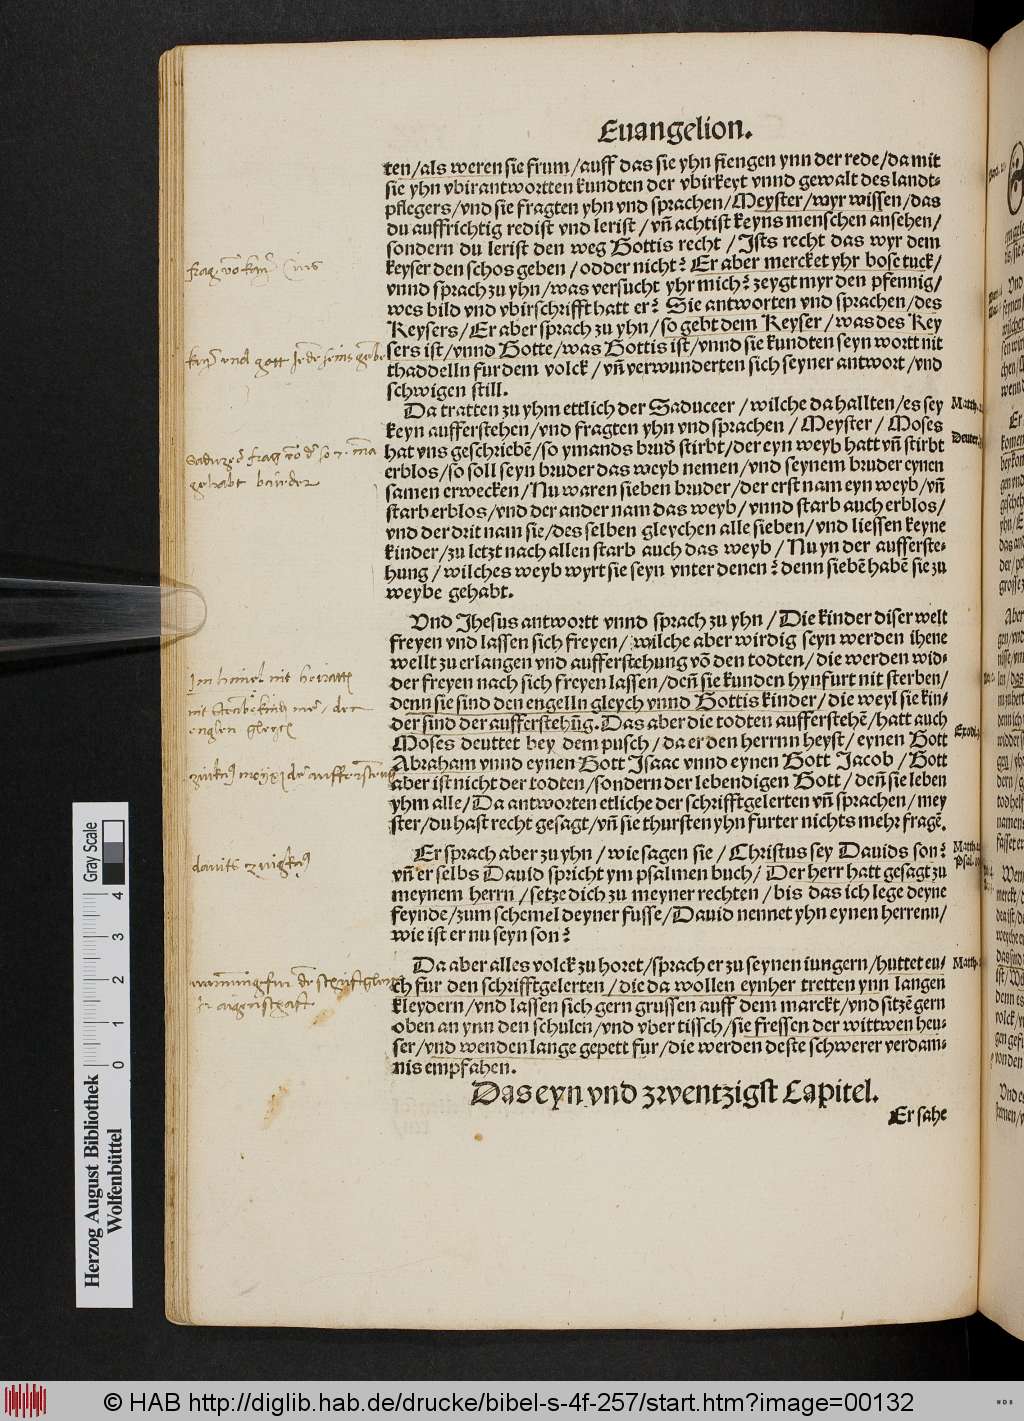 Euangelion.
ten/als weren sie frum/auff das sie yhn fiengen ynn der rede/da mit
sie yhn vbirantwortten kundten der vbirkeyt vnnd gewalt des landt-
pflegers/vnd sie fragten yhn vnd sprachen/Meyster/wyr wissen/das
du auffrichtig redist vnd lerist/vñ achtist keyns menschen ansehen/
sondern du lerist den weg Gottis recht/Ists recht das wyr dem
keyser den schos geben/odder nicht? Er aber mercket yhr bose tuck/
vnnd sprach zu yhn/was versucht yhr mich? zeygt myr den pfennig/
wes bild vnd vbirschrifft hatt er? Sie antworten vnd sprachen/des
Keysers/Er aber sprach zu yhn/so gebt dem Keyser/was des Key
sers ist/vnnd Gotte/was Gottis ist/vnnd sie kundten seyn wortt nit
thaddelln fur dem volck/vñ verwunderten sich seyner antwort/vnd
schwigen still.
Da tratten zu yhm ettlich der Saduceer/wilche da hallten/es sey
keyn aufferstehen/vnd fragten yhn vnd sprachen/Meyster/Moses
hat vns geschriebẽ/so ymands brud stirbt/der eyn weyb hatt vñ stirbt
erblos/so soll seyn bruder das weyb nemen/vnd seynem bruder eynen
samen erwecken/Nu waren sieben bruder/der erst nam eyn weyb/vñ
starb erblos/vnd der ander nam das weyb/vnnd starb auch erblos/
vnd der drit nam sie/des selben gleychen alle sieben/vnd liessen keyne
kinder/zu letzt nach allen starb auch das weyb/Nu yn der aufferste-
hung/wilches weyb wyrt sie seyn vnter denen? denn siebẽ habẽ sie zu
weybe gehabt.
Vnd Jhesus antwortt vnnd sprach zu yhn/Die kinder diser welt
freyen vnd lassen sich freyen/wilche aber wirdig seyn werden ihene
wellt zu erlangen vnd aufferstehung võ den todten/die werden wid-
der freyen nach sich freyen lassen/deñ sie kunden hynfurt nit sterben/
denn sie sind den engelln gleych vnnd Gottis kinder/die weyl sie kin-
der sind der aufferstehũg. Das aber die todten aufferstehẽ/hatt auch
Moses deuttet bey dem pusch/da er den herrnn heyst/eynen Gott
Abraham vnnd eynen Gott Isaac vnnd eynen Gott Jacob/Gott
aber ist nicht der todten/sondern der lebendigen Gott/deñ sie leben
yhm alle/Da antworten etliche der schrifftgelerten vñ sprachen/mey
ster/du hast recht gesagt/vñ sie thursten yhn furter nichts mehr fragẽ.
Er sprach aber zu yhn/wie sagen sie/Christus sey Dauids son?
vñ er selbs Dauid spricht ym psalmen buch/Der herr hatt gesagt zu
meynem herrn/setze dich zu meyner rechten/bis das ich lege deyne
feynde/zum schemel deyner fusse/Dauid nennet yhn eynen herrenn/
wie ist er nu seyn son?
Da aber alles volck zu horet/sprach er zu seynen iungern/huttet eu-
ch fur den schrifftgelerten/die da wollen eynher tretten ynn langen
kleydern/vnd lassen sich gern grussen auff dem marckt/vnd sitzẽ gern
oben an ynn den schulen/vnd vber tissch/sie fressen der wittwen heu-
ser/vnd wenden lange gepett fur/die werden deste schwerer verdam-
nis empfahen.
Das eyn vnd zwentzigst Capitel.
Er sahe
Matth.
Deuter.
Exodi.
Matth.
Psal.
Matth.
Gray Scale
0 1 2 3 4
Herzog August Bibliothek
Wolfenbüttel
© HAB http://diglib.hab.de/drucke/bibel-s-4f-257/start.htm?image=00132